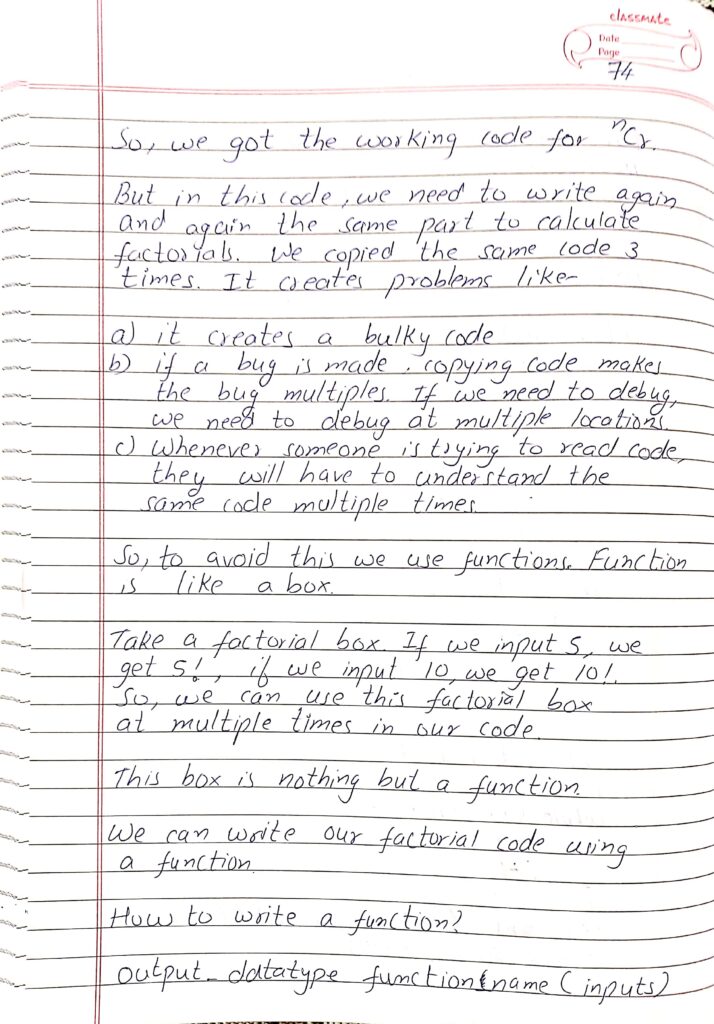 classmate
Date
Page
74
So, we got the working code for ⁿCr.
But in this code, we need to write again
and again the same part to calculate
factorials. We copied the same code 3
times. It creates problems like-
a) it creates a bulky code
b) if a bug is made, copying code makes
the bug multiples. If we need to debug,
we need to debug at multiple locations.
c) Whenever someone is trying to read code,
they will have to understand the
same code multiple times.
So, to avoid this we use functions. Function
is like a box.
Take a factorial box. If we input 5, we
get 5!, if we input 10, we get 10!.
So, we can use this factorial box
at multiple times in our code.
This box is nothing but a function.
We can write our factorial code using
a function
How to write a function?
output_datatype function name (inputs)